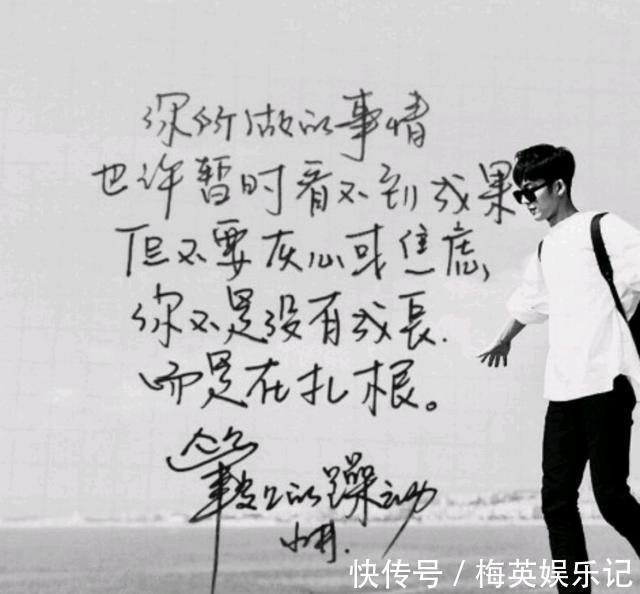 你所做的事情
也许暂时看不到成果
但不要灰心或焦虑,
你不是没有成長.
而是在扎根。
的躁动
快传号 / 梅英娱乐记